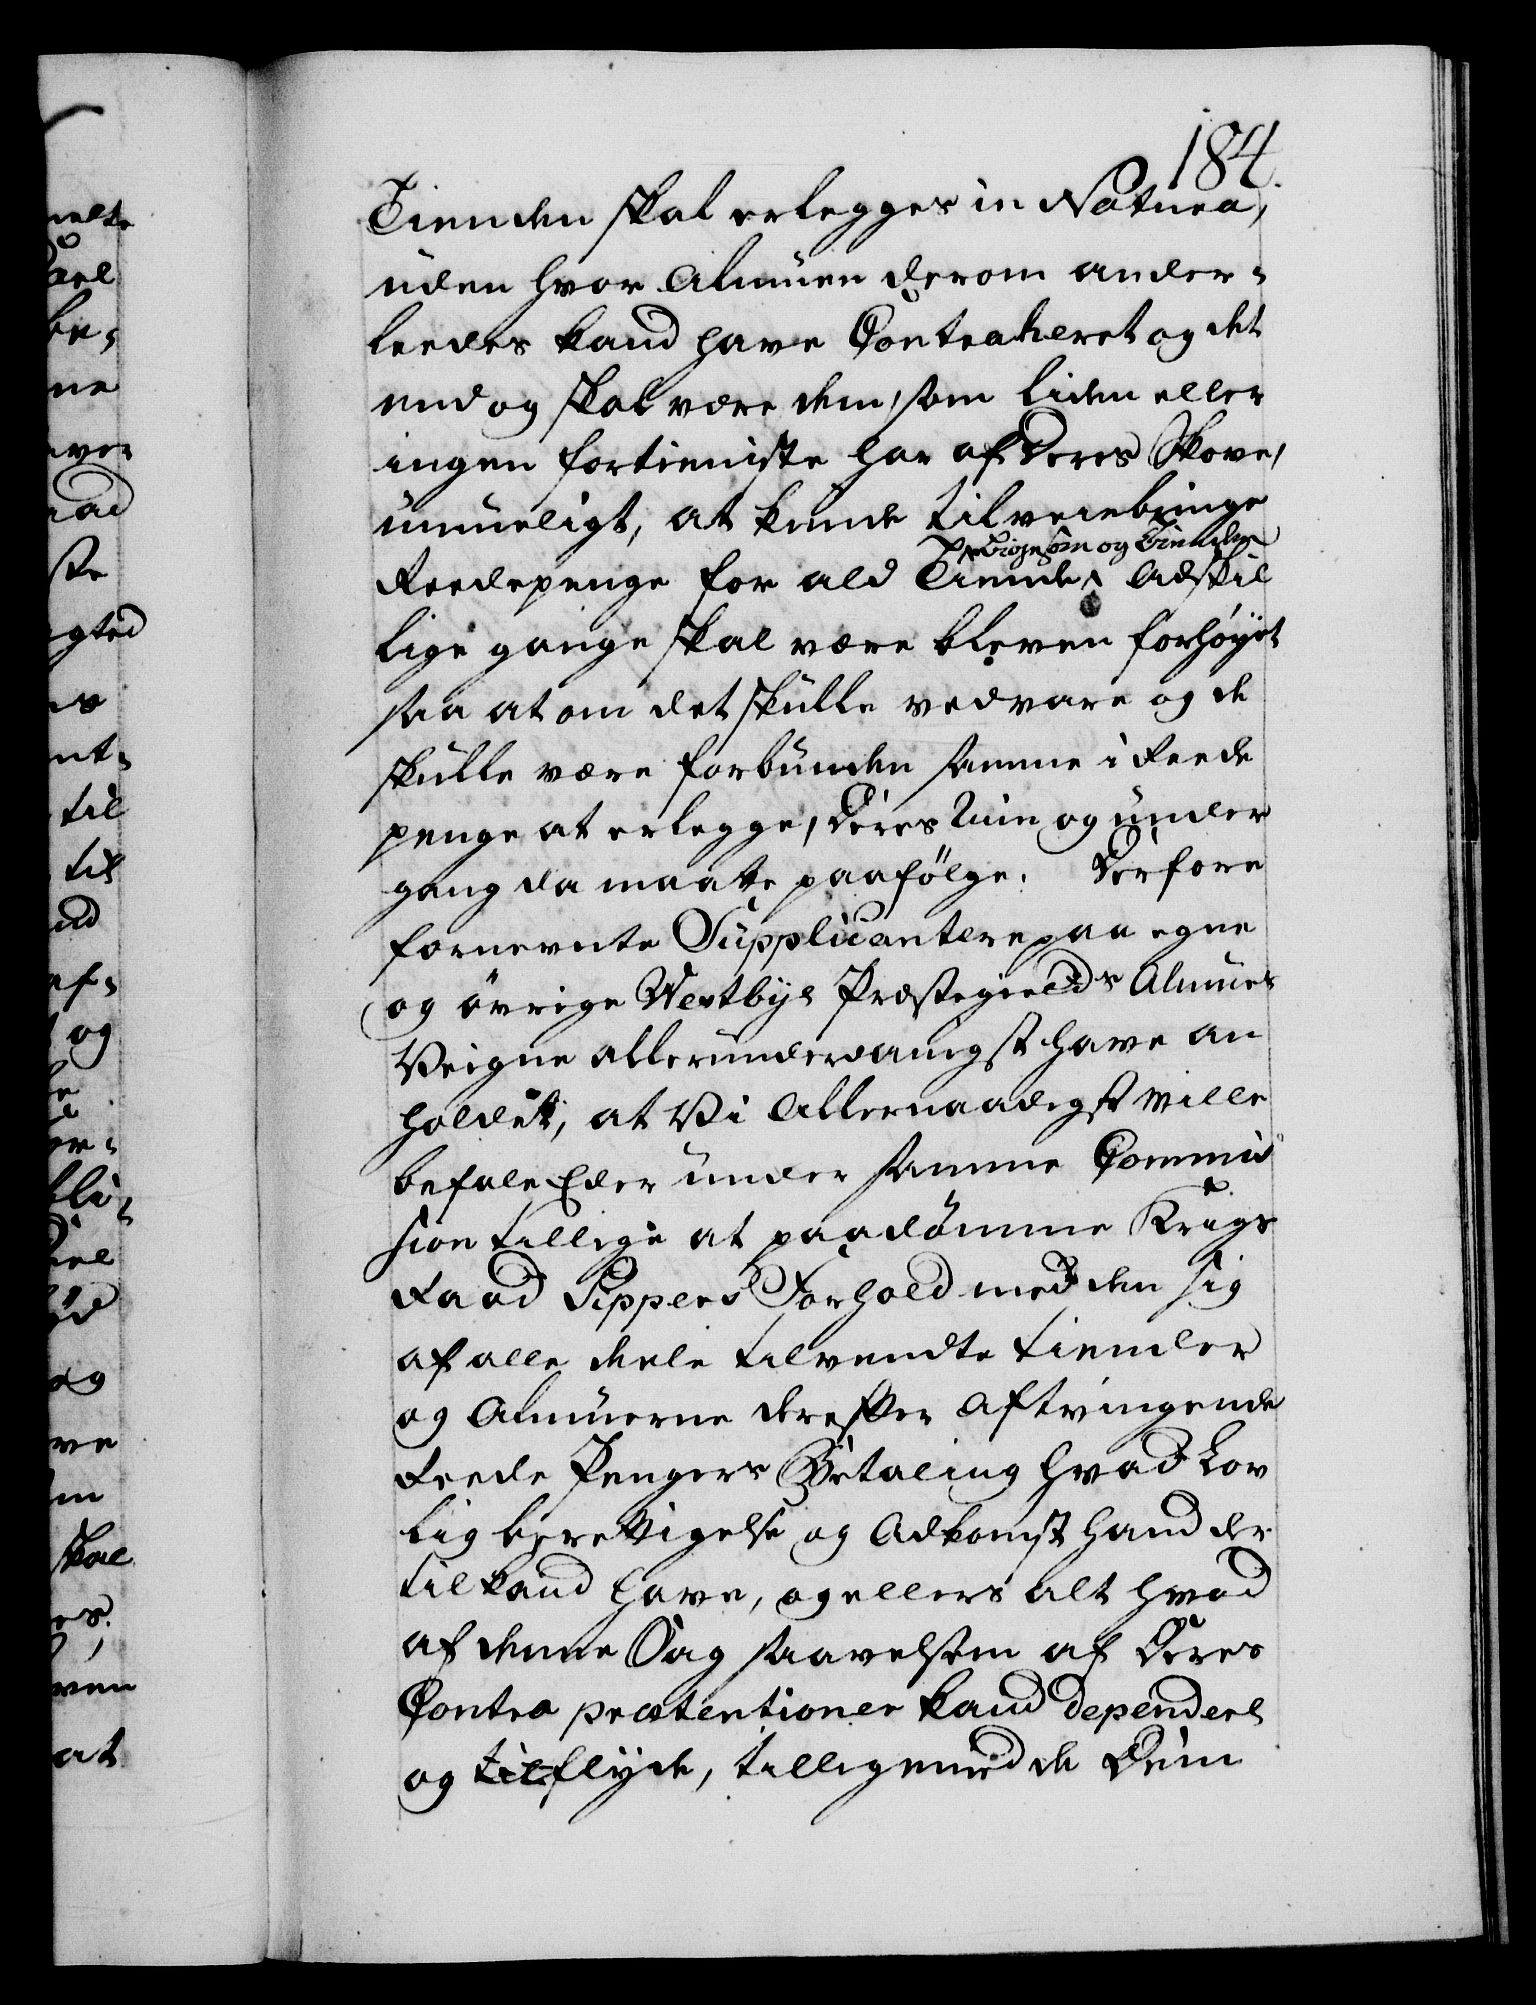 184.
Tienden skal erlegges in Natura,
uden hvor Almuen derom ander-
leedes kand have Contraheret og det
end og skal være dem, som liden eller
ingen fortieniste har af deres Skove,
umueligt, at kunde tilveiebringe
Reedepenge for ald Tiende,
ligesom og Tienden
Adskil
lige gange skal være bleven forhøyet
saa at om det skulle vedvare og de
skulle være forbunden samme i Reede
penge at erlegge, deres Ruin og under
gang da maatte paafølge. Derfore
fornevnte Supplicantere paa egne
og øvrige Westbye Præstegields Almues
Veigne allerunderdanigst have an
holdet, at Vi Allernaadigst ville
befale Eder under samme Commis
sion tillige at paadømme Krigs
Raad Pippers Forhold med den sig
af alle deele tilvendte tiender
og Almuerne derefter Aftvingende
Reede Pengers Betaling hvad Lov
lig berettigelse og Adkomst hand der
til kand have, og ellers alt hvad
af denne Sag saavelsom af deres
Contra prætentioner kand dependere
og tilflyde, tilligemed de Dem